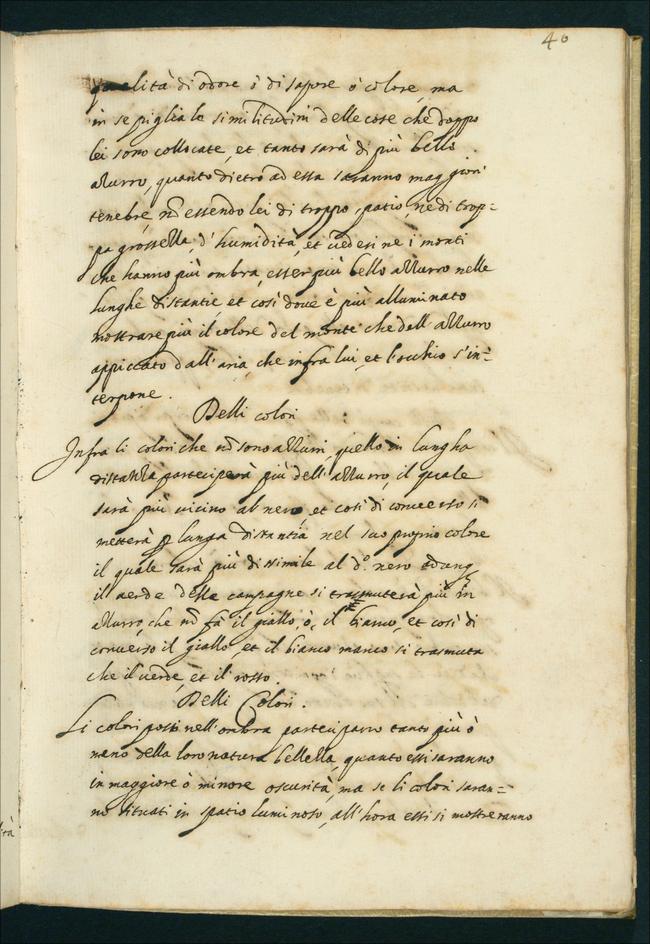 40
qualità di odore ò di sapore ò colore, ma
in se piglia le similitudini delle cose che doppo
lei sono collocate, et tanto sarà di più bello
azurro, quanto dietro ad essa saranno maggiori
tenebre, nõ essendo lei di troppo spatio, ne di trop=
pa grossezza, d'humidità, et vedesi ne i monti
che hanno più ombra, esser più bello azzurro nelle
lunghe distantie, et così dove è più alluminato
mostrare più il colore del monte che dell'azzurro
appiccato dall'aria, che infra lui, et l'occhio s'in=
terpone.
Delli colori
Infra li colori che nõ sono azzurri, quello in lungha
distanza parteciperà più dell'azzurro, il quale
sarà più vicino al nero, et così di converso si
metterà p lunga distantia nel suo proprio colore
il quale sarà più dissimile al d.º nero
il verde delle campagne si trasmuterà più in
azzurro, che nõ fà il giallo, ò, il bianco, et così di
converso il giallo, et il bianco manco si trasmuta
che il verde, et il rosso.
Delli Colori.
Li colori posti nell'ombra parteciparno tanto più ò
meno della loro natura bellezza, quanto essi saranno
in maggiore ò minore oscurità, ma se li colori saran=
no situati in spatio luminoso, all'hora essi si mostreranno
ità